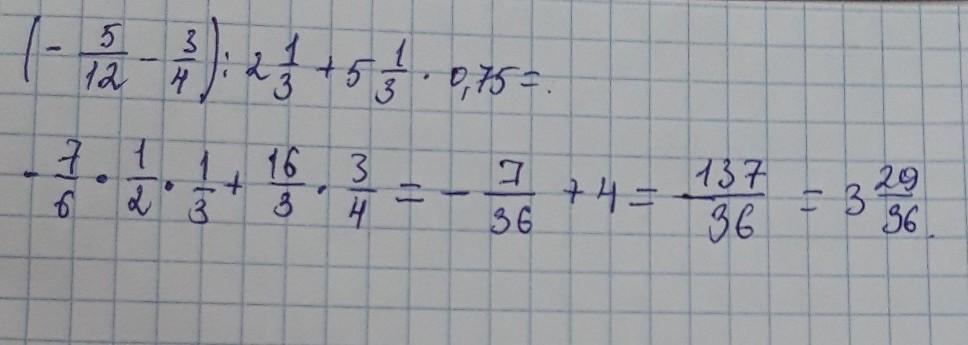 (- 5/12 - 3/4) : 2 1/3 + 5 1/3 · 0,75 = .
- 7/6 · 1/2 · 1/3 + 16/3 · 3/4 = - 7/36 + 4 = 137/36 = 3 29/36.